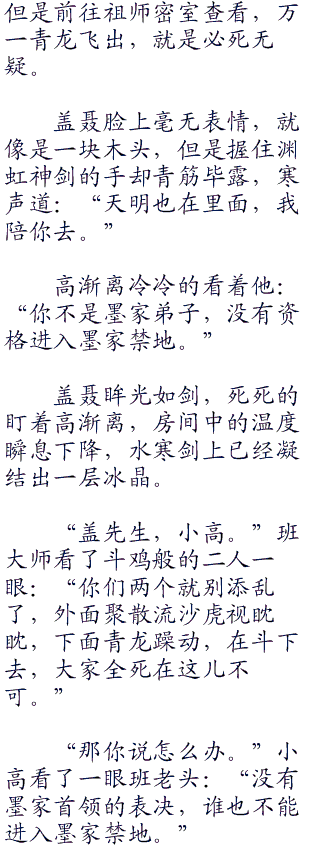 但是前往祖师密室查看，万
一青龙飞出，就是必死无
疑。
盖聂脸上毫无表情，就
像是一块木头，但是握住渊
虹神剑的手却青筋毕露，寒
声道：“天明也在里面，我
陪你去。”
高渐离冷冷的看着他：
“你不是墨家弟子，没有资
格进入墨家禁地。”
盖聂眸光如剑，死死的
盯着高渐离，房间中的温度
瞬息下降，水寒剑上已经凝
结出一层冰晶。
“盖先生，小高。”班
大师看了斗鸡般的二人一
眼：“你们两个就别添乱
了，外面聚散流沙虎视眈
眈，下面青龙躁动，在斗下
去，大家全死在这儿不
可。”
“那你说怎么办。”小
高看了一眼班老头：“没有
墨家首领的表决，谁也不能
进入墨家禁地。”